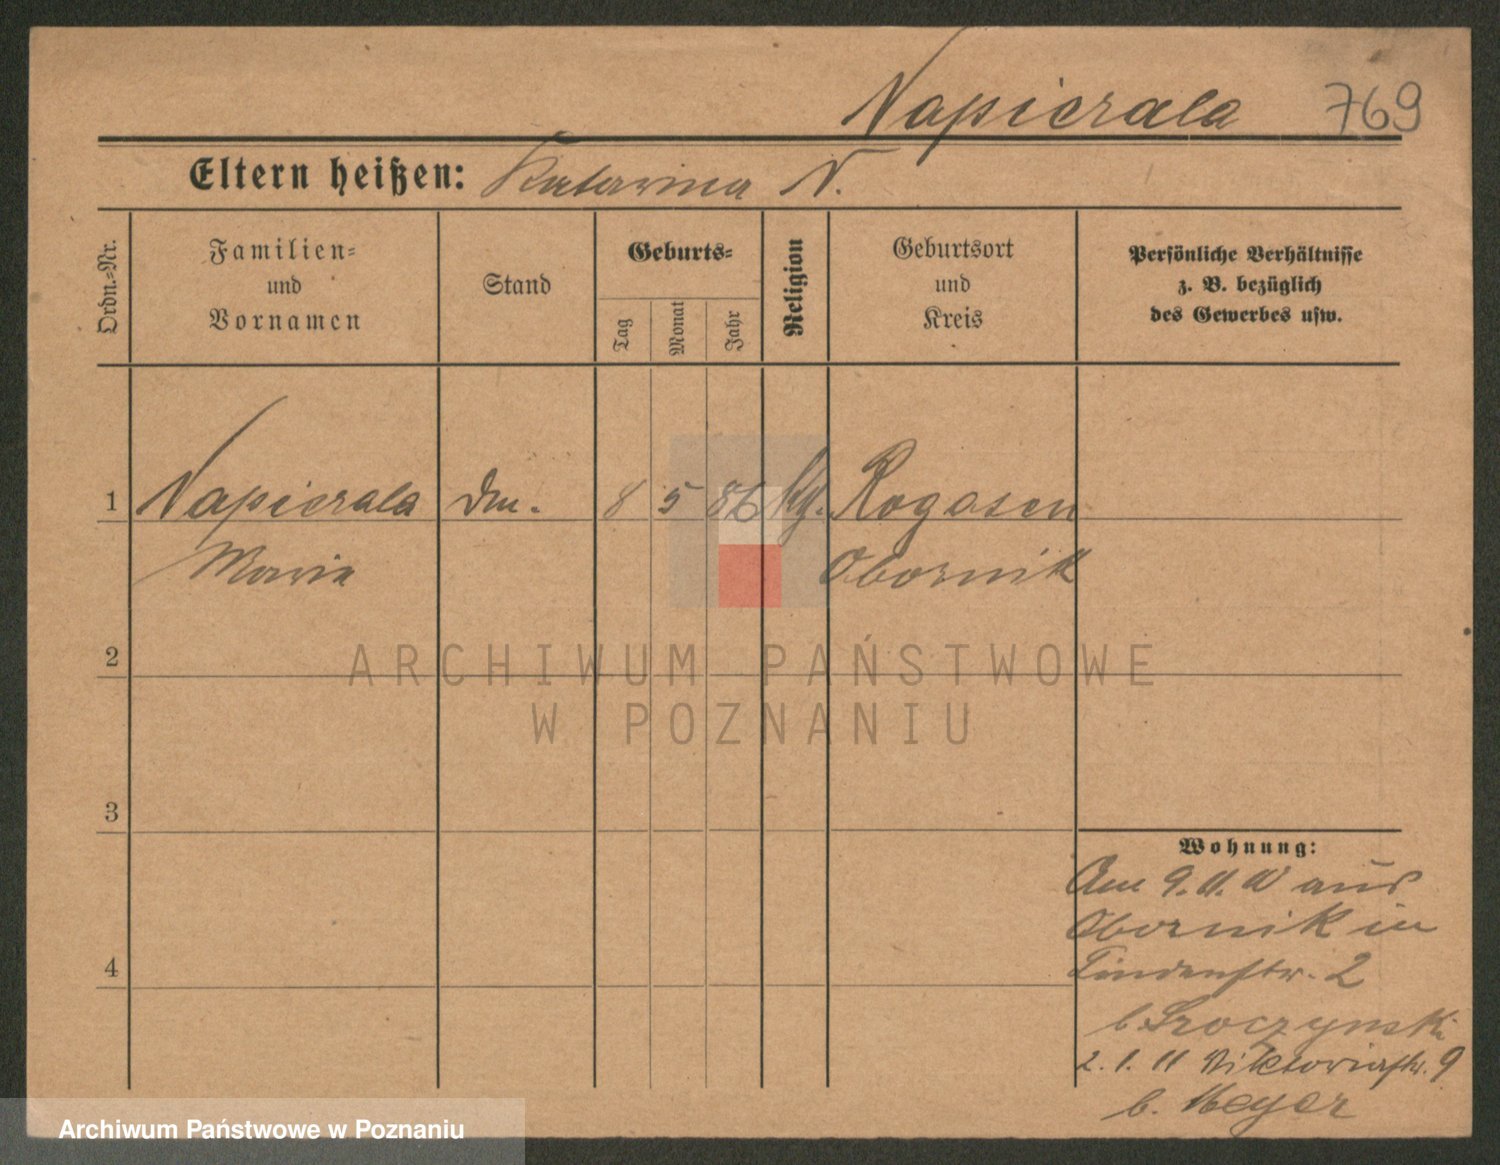 Napierala 769
Eltern heißen: Katarina N.
Ordn.-Nr.
Familien-
und
Vornamen
Stand
Geburts-
Tag
Monat
Jahr
Religion
Geburtsort
und
Kreis
Persönliche Verhältnisse
z. B. bezüglich
des Gewerbes usw.
1 Napierala 8 5 86 Rogasen
Maria Obornik
2
3
4
Wohnung:
Am 9. 11. 10 aus
Obornik in
Lindenstr. 2
2. 1. 11 Viktoriastr. 9
b. Meyer
ARCHIWUM PAŃSTWOWE
W POZNANIU
Archiwum Państwowe w Poznaniu